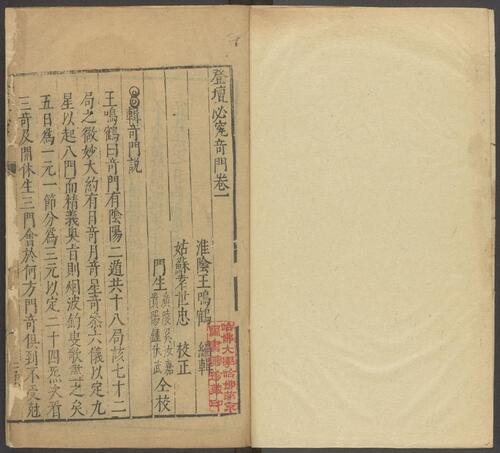 登壇必究奇門卷一
淮陰王鳴鶴 編輯
姑蘇李世忠 校正
門生
仝校
輯奇門説
王鳴鶴曰奇門有陰陽二遁共十八局該七十二
局之微妙大約有日奇月奇星奇叅六儀以定九
星以起八門而精義奧旨則烟波釣叟歌盡之矣
五日為一元一節分為三元以定二十四炁次看
三奇及開休生三門會於何方門奇俱到不受剋
哈佛大學哈佛燕京
圖書館珍藏印